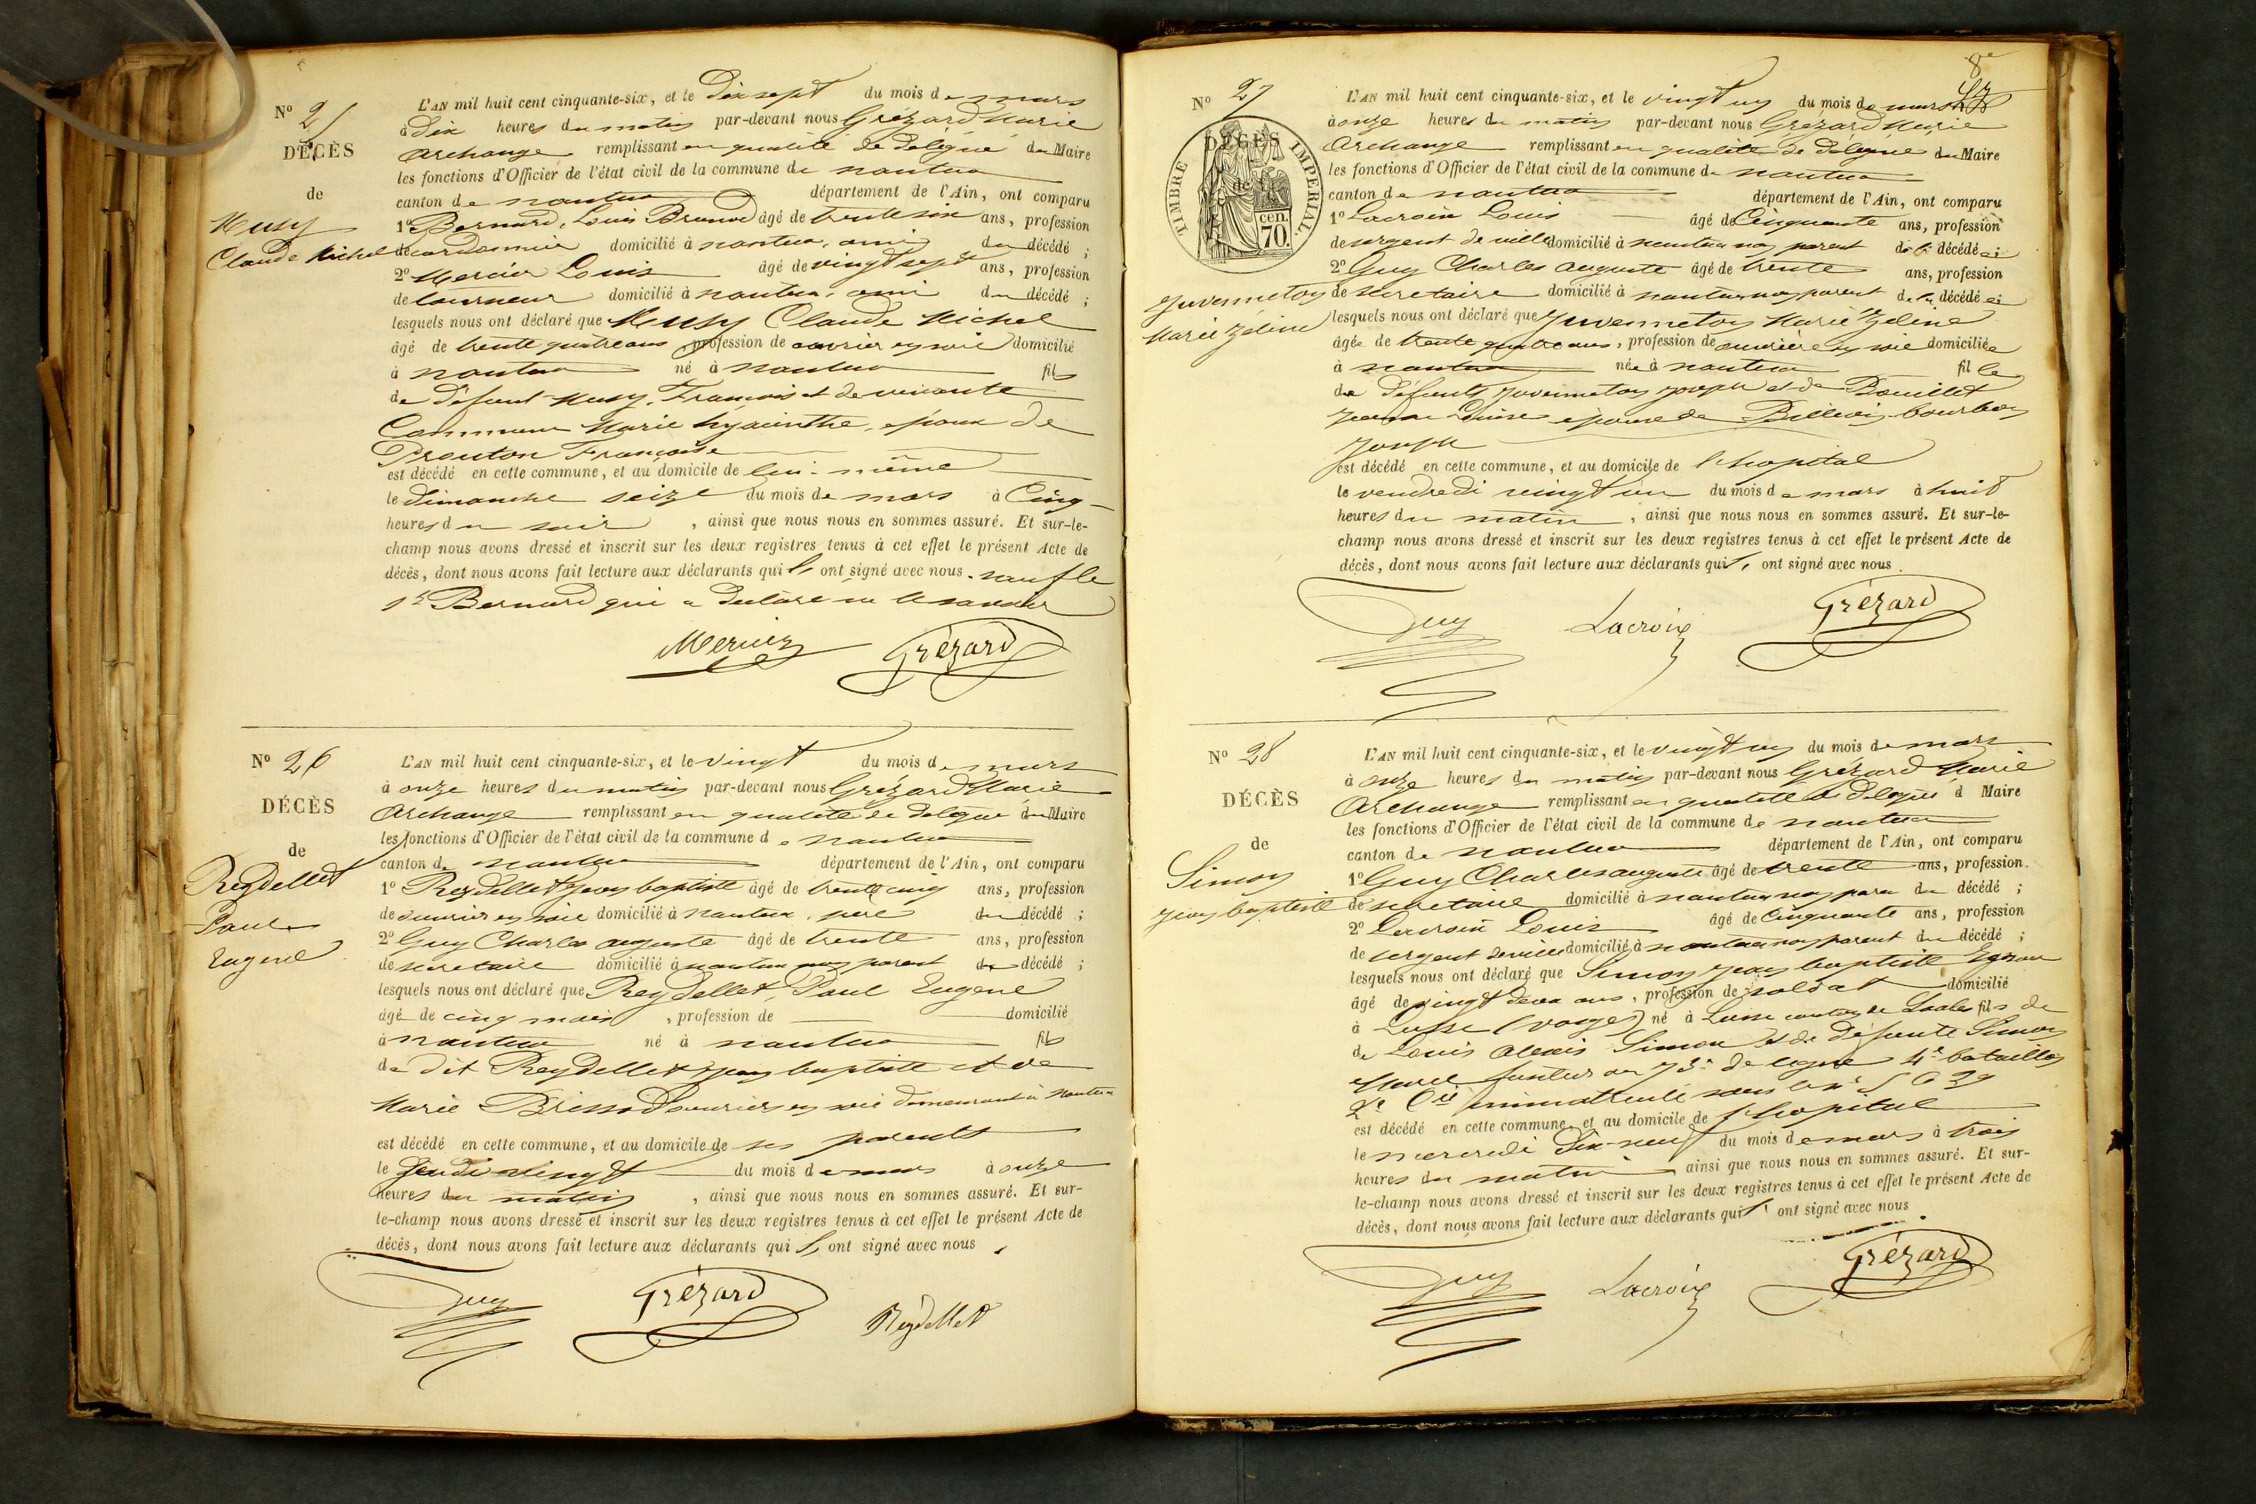 Nº 25
DÉCÈS
de
Musy
Claude Michel
L'AN mil huit cent cinquante-six, et le Dix sept du mois de mars
à Dix heures du matin par-devant nous Grézard Marie
Archange remplissant en qualité de délégué du Maire
les fonctions d'Officier de l'état civil de la commune de nantua
canton de nantua département de l'Ain, ont comparu
1º Bernard, Louis Brunod âgé de trente six ans, profession
de cordonnier domicilié à nantua, ami du décédé ;
2º Mercier Louis âgé de vingt sept ans, profession
de tourneur domicilié à nantua, ami du décédé ;
lesquels nous ont déclaré que Musy Claude Michel
âgé de trente quatre ans profession de ouvrier en soie domicilié
à nantua né à nantua fils
de défunt Musy, François et de vivante
Marie hyacinthe, époux de
Prouton Françoise
est décédé en cette commune, et au domicile de lui-même
le dimanche seize du mois de mars à Cinq
heures du soir, ainsi que nous nous en sommes assuré. Et sur-le-
champ nous avons dressé et inscrit sur les deux registres tenus à cet effet le présent Acte de
décès, dont nous avons fait lecture aux déclarants qui ont signé avec nous. sauf le
sr Bernard qui a déclaré ne le savoir
Mercier Grézard
Nº 26
DÉCÈS
de
Reydellet
Paul
Eugene
L'AN mil huit cent cinquante-six, et le vingt du mois de mars
à onze heures du matin par-devant nous Grézard Marie
Archange remplissant en qualité de délégué du Maire
les fonctions d'Officier de l'état civil de la commune de nantua
canton de nantua département de l'Ain, ont comparu
1º Reydellet jean baptiste âgé de trente cinq ans, profession
de ouvrier en soie domicilié à nantua, père du décédé ;
2º Guy Charles auguste âgé de trente ans, profession
de secretaire domicilié à nantua non parent du décédé ;
lesquels nous ont déclaré que Reydellet, Paul Eugene
âgé de cinq mois, profession de domicilié
à nantua né à nantua fils
de dit Reydellet jean baptiste et de
Marie Brissod ouvriers en soie demeurant à Nantua
est décédé en cette commune, et au domicile de ses parents
le Jeudi vingt du mois de mars à onze
heures du matin, ainsi que nous nous en sommes assuré. Et sur-
le-champ nous avons dressé et inscrit sur les deux registres tenus à cet effet le présent Acte de
décès, dont nous avons fait lecture aux déclarants qui ont signé avec nous.
Guy Grézard Reydellet
8e
Nº 27
TIMBRE IMPERIAL.
cen.
70.
DÉCÈS
de
Juvenneton
Marie Zéline
L'AN mil huit cent cinquante-six, et le vingt un du mois de mars
à onze heures du matin par-devant nous Grézard Marie
Archange remplissant en qualité de délégué du Maire
les fonctions d'Officier de l'état civil de la commune de nantua
canton de nantua département de l'Ain, ont comparu
1º Lacroix Louis âgé de Cinquante ans, profession
de sergent de ville domicilié à nantua non parent de la décédée ;
2º Guy Charles auguste âgé de trente ans, profession
de secretaire domicilié à nantua non parent de la décédée ;
lesquels nous ont déclaré que Juvenneton Marie Zéline
âgée de trente quatre ans, profession de ouvrière en soie domiciliée
à nantua née à nantua fille
de défunts Juvenneton joseph et de Bouillet
jeanne Louise épouse de Billion-bourbon
joseph
est décédé en cette commune, et au domicile de l'hopital
le vendredi vingt un du mois de mars à huit
heures du matin, ainsi que nous nous en sommes assuré. Et sur-le-
champ nous avons dressé et inscrit sur les deux registres tenus à cet effet le présent Acte de
décès, dont nous avons fait lecture aux déclarants qui ont signé avec nous.
Guy Lacroix Grézard
Nº 28
DÉCÈS
de
Simon
jean baptiste
L'AN mil huit cent cinquante-six, et le vingt un du mois de mars
à onze heures du matin par-devant nous Grézard Marie
Archange remplissant en qualité de délégué d Maire
les fonctions d'Officier de l'état civil de la commune de nantua
canton de nantua département de l'Ain, ont comparu
1º Guy Charles auguste âgé de trente ans, profession
de secretaire domicilié à nantua non parent du décédé ;
2º Lacroix Louis âgé de Cinquante ans, profession
de sergent de ville domicilié à nantua non parent du décédé ;
lesquels nous ont déclaré que Simon jean baptiste
âgé de vingt deux ans, profession de soldat domicilié
à Lusse (vosges) né à Lusse canton de Saales fils de
de Louis alexis Simon et de défunte Simon
Marie fusilier au 73e de ligne 4e bataillon
2e Cie immatriculé sous le nº 5639
est décédé en cette commune, et au domicile de l'hopital
le mercredi dix-neuf du mois de mars à trois
heures du matin ainsi que nous nous en sommes assuré. Et sur-
le-champ nous avons dressé et inscrit sur les deux registres tenus à cet effet le présent Acte de
décès, dont nous avons fait lecture aux déclarants qui ont signé avec nous
Guy Lacroix Grézard